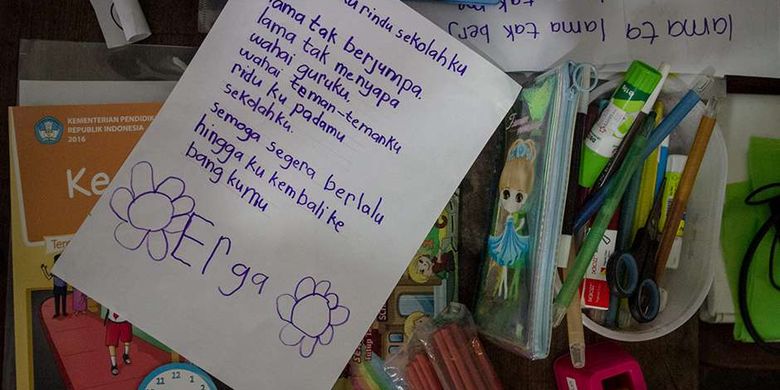 ku rindu sekolahku
lama tak berjumpa.
lama tak menyapa
wahai guruku,
wahai teman-temanku
ridu ku padamu
sekolahku.
semoga segera berlalu
hingga ku kembali ke
bang kumu
Erga
lama ta lama tak berj
tak
KEMENTERIAN PENDIDIK
REPUBLIK INDONESIA
2016
Ke